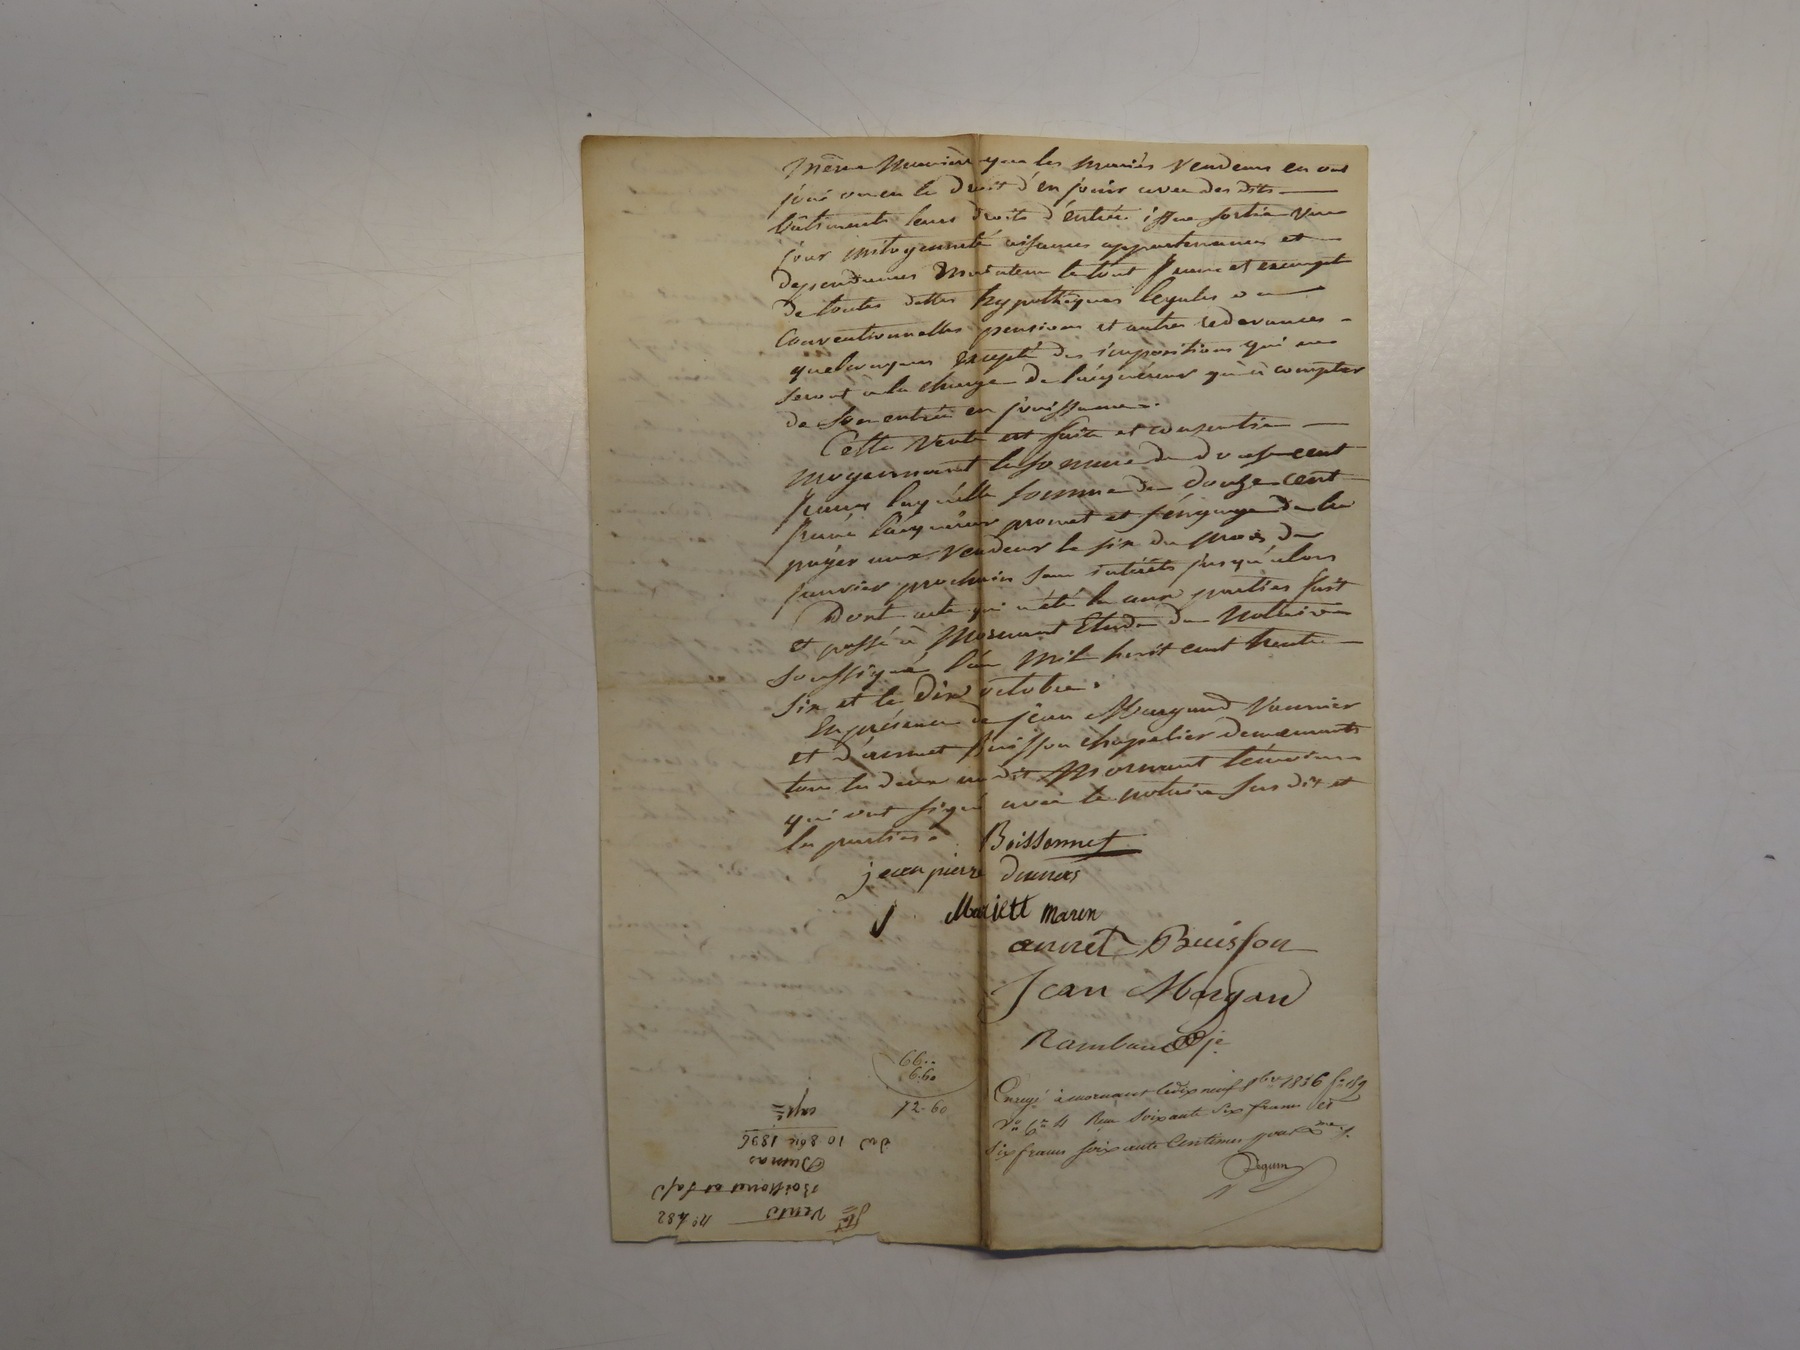 même manière que les mariés Vendeurs en ont
joui ou eu le droit d'en jouir avec des dits
bâtiments leurs droits d'entrée issue sortie vue
jour mitoyenneté aisances appartenances et
dépendances Mutation le tout franc et exempt
de toutes dettes hypothèques légales ou
Conventionnelles pensions et autres redevances
quelconques excepté des impositions qui ne
seront à la charge de l'acquéreur qu'à compter
de son entrée en jouissance.
Cette Vente est faite et consentie
moyennant la somme de douze cent
francs laquelle somme de douze cent
francs l'acquéreur promet et s'engage de la
payer aux Vendeurs le six du mois de
janvier prochain sans intérêts jusqu'alors
Dont acte qui a été lu aux parties fait
et passé à Mornant Etude du Notaire
soussigné l'an Mil huit cent trente
six et le Dix octobre.
En présence de jean Margand Vannier
et d'annet Buisson chapelier demeurants
tous les deux au dit Mornant témoins
qui ont signé avec le notaire sus dit et
les parties.
Boissonnet
jean pierre dumas
Mariett maren
annet Buisson
Jean Morgand
Rambaud
66..
6.60
72-60
Enregé à mornant le dix neuf 8bre 1836 fo 159
Vo Ce 4 Reçu Soixante Six francs et
Six francs soixante Centimes pour Xme
Deguin
Vente No 482
Boissonnet et
Dumas
du 10 8bre 1836
expé